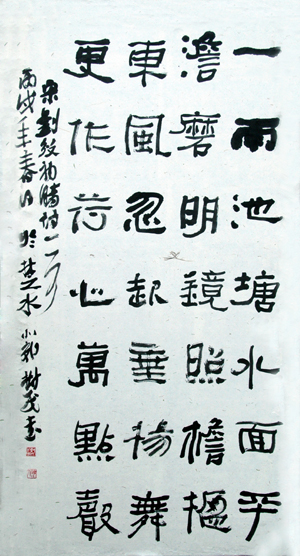 一雨池塘水面平
澹磨明鏡照檐楹
東風忽起垂楊舞
更作荷心萬點聲
宋劉攽詩一首
丙戌年春日於楚水樹茂書